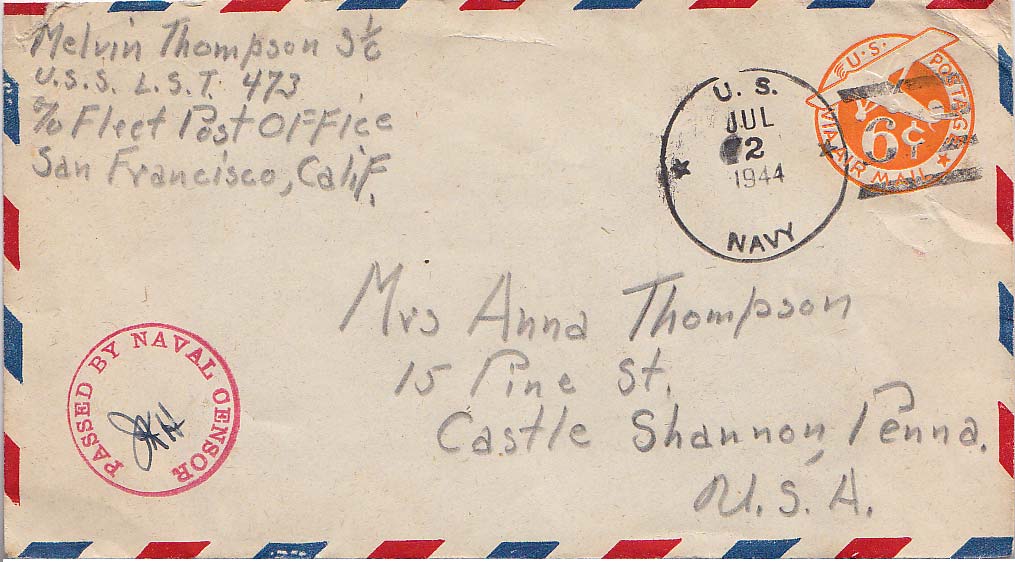 Melvin Thompson S 1/c
U.S.S. L.S.T. 473
c/o Fleet Post Office
San Francisco, Calif.
U. S.
JUL
2
1944
NAVY
U.S. POSTAGE
6¢
VIA AIR MAIL
Mrs Anna Thompson
15 Pine St.
Castle Shannon, Penna.
U.S.A.
PASSED BY NAVAL CENSOR